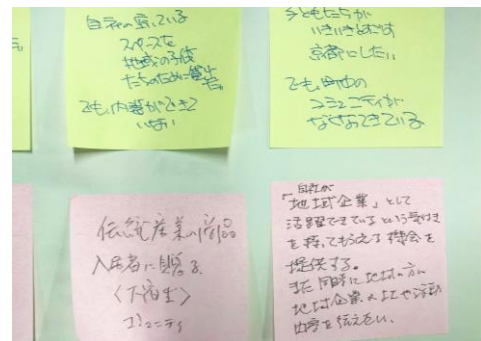 自社の空いている
スペースを
地域の子供
たちのために
でも、内容ができて
いない
子どもたちが
いきいきとくらす
京都にしたい
でも、町中の
コミュニティが
なくなってきている
伝統産業の商品
入居者に贈る
〈下宿生〉
コミュニティ
自社が
「地域企業」として
活躍できているという気付き
を持ってもらえる機会を
提供する。
また同時に地域の方に
地域企業の
内容を伝えたい。